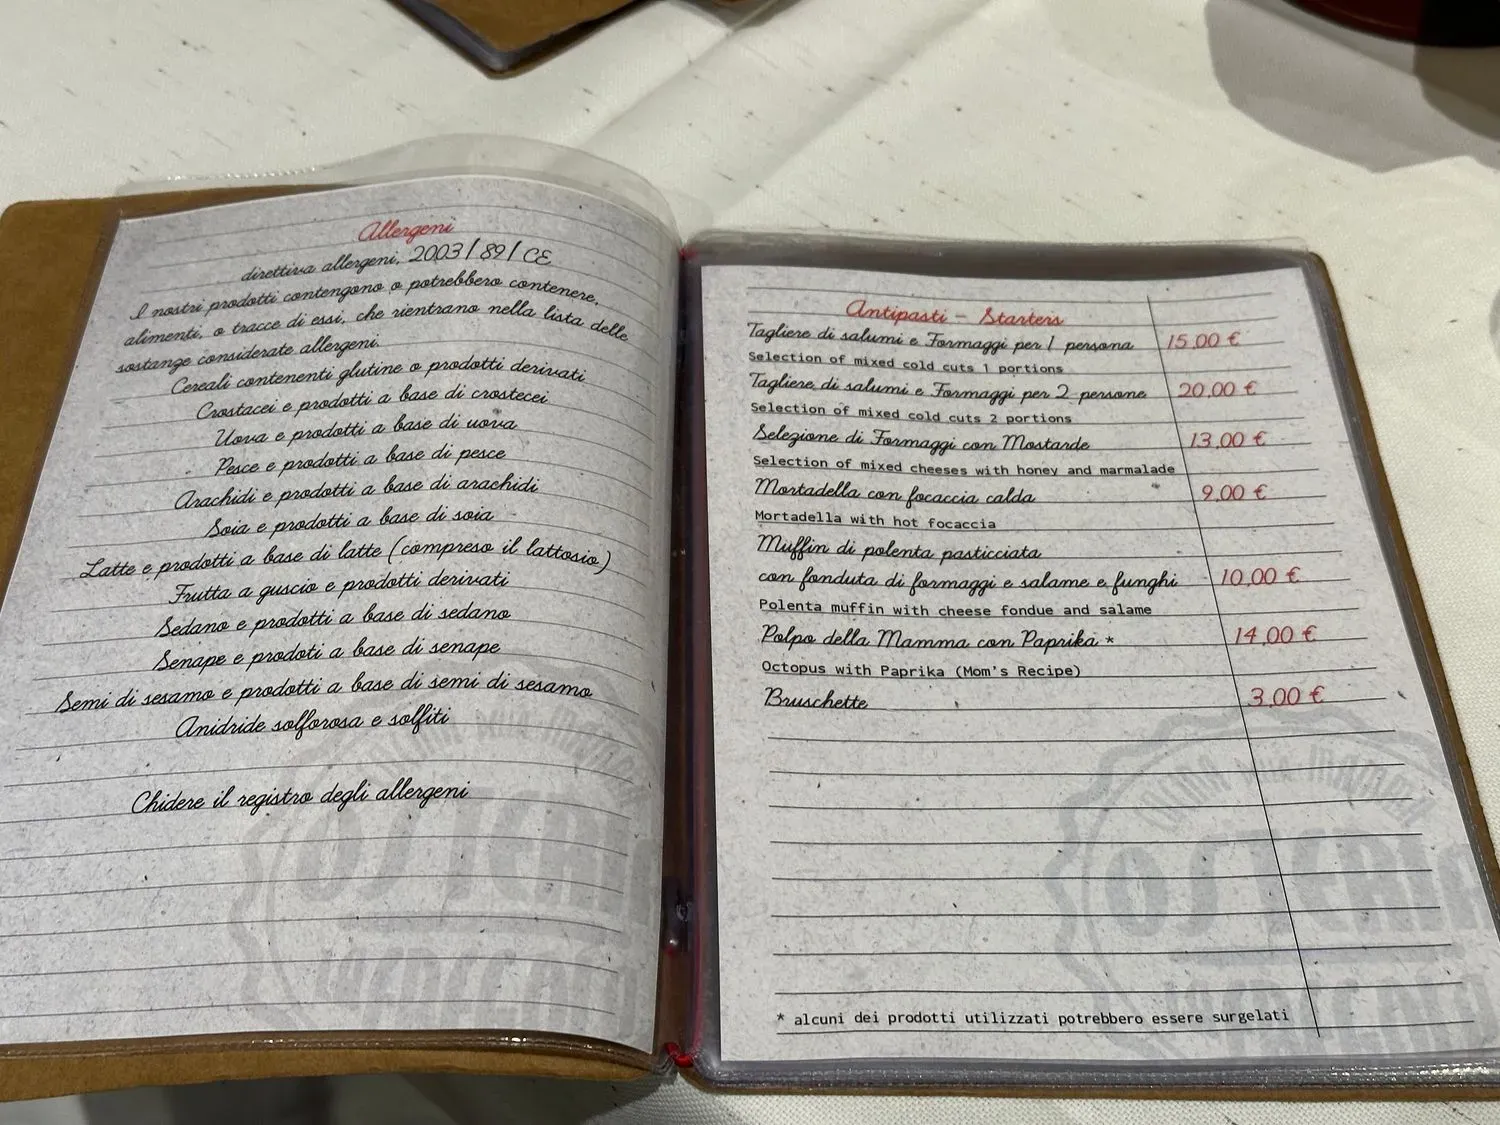 Allergeni
direttiva allergeni, 2003/89/CE
I nostri prodotti contengono o potrebbero contenere,
alimenti, o tracce di essi, che rientrano nella lista delle
sostange considerate allergeni.
Cereali contenenti glutine o prodotti derivati
Crostacei e prodotti a base di crostecei
Uova e prodotti a base di uova
Pesce e prodotti a base di pesce
Arachidi e prodotti a base di arachidi
Soia e prodotti a base di soia
Latte e prodotti a base di latte (compreso il lattosio)
Frutta a guscio e prodotti derivati
Sedano e prodotti a base di sedano
Senape e prodoti a base di senape
Semi di sesamo e prodotti a base di semi di sesamo
Anidride solforosa e solfiti
Chidere il registro degli allergeni
Antipasti - Starters
Tagliere di salumi e Formaggi per 1 persona 15,00 €
Selection of mixed cold cuts 1 portions
Tagliere di salumi e Formaggi per 2 persone 20,00 €
Selection of mixed cold cuts 2 portions
Selezione di Formaggi con Mostarde 13,00 €
Selection of mixed cheeses with honey and marmalade
Mortadella con focaccia calda 9,00 €
Mortadella with hot focaccia
Muffin di polenta pasticciata
con fonduta di formaggi e salame e funghi 10,00 €
Polenta muffin with cheese fondue and salame
Polpo della Mamma con Paprika * 14,00 €
Octopus with Paprika (Mom's Recipe)
Bruschette 3,00 €
* alcuni dei prodotti utilizzati potrebbero essere surgelati